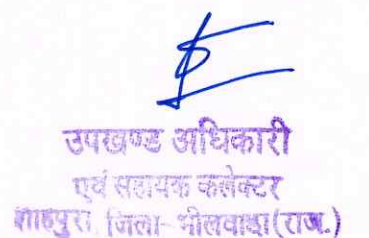 उपखण्ड अधिकारी
एवं सहायक कलेक्टर
शाहपुरा, जिला-भीलवाडा (राज.)